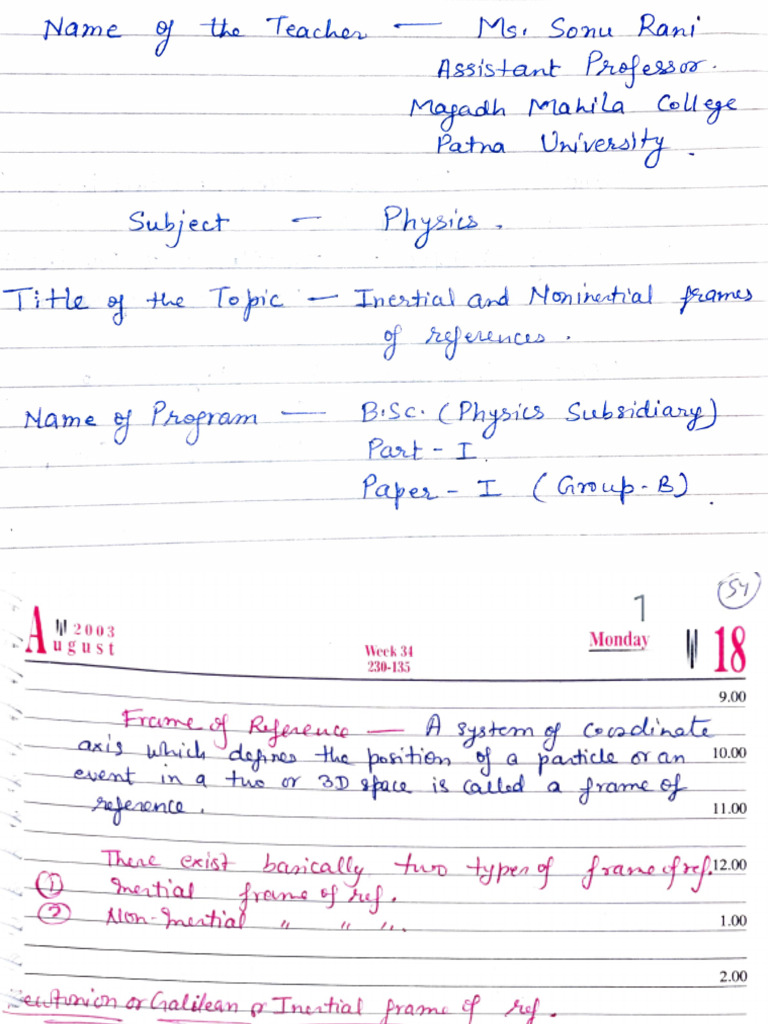 Name of the Teacher — Ms. Sonu Rani
Assistant Professor.
Magadh Mahila College
Patna University.
Subject — Physics.
Title of the Topic — Inertial and Noninertial frames
of references.
Name of Program — B.Sc. (Physics Subsidiary)
Part - I.
Paper - I (Group-B).
54
1
August 2003
Week 34
230-135
Monday
18
9.00
Frame of Reference — A system of coordinate
axis which defines the position of a particle or an
10.00
event in a two or 3D space is called a frame of
reference.
11.00
There exist basically two types of frame of ref.
12.00
① Inertial frame of ref.
② Non-Inertial " " ".
1.00
2.00
Newtonion or Galilean or Inertial frame of ref.